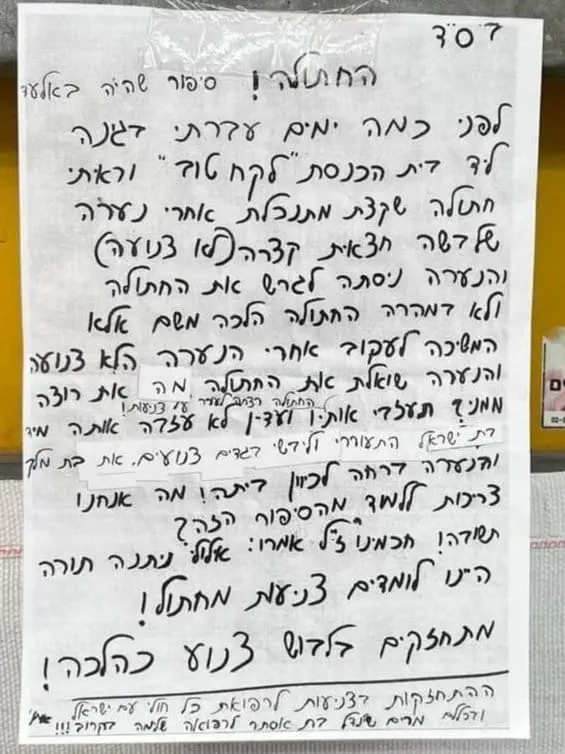 ב״ס״ד
החתולה! סיפור שהיה באלעד
לפני כמה ימים עברתי בגנה
ליד בית הכנסת "לקח טוב" וראתי
חתולה שקצת מתנכלת אחרי נערה
שלבשה חצאית קצרה (לא צנועה)
והנערה ניסתה לגרש את החתולה
ולא במהרה החתולה הלכה משם אלא
המשיכה לעקוב אחרי הנערה הלא צנועה
והנערה שואלת את החתולה מה את רוצה
החתולה רצתה לעורר על צניעות!
ממני? תעזבי אותי! ועדין לא עזבה אותה מיד
בת ישראל התעוררי ולבשי בגדים צנועים, את בת מלך
והנערה ברחה לכיוון ביתה! מה אנחנו
צריכות ללמד מהסיפור הזה?
תשובה! חכמינו ז"ל אמרו: אלולי ניתנה תורה
היינו לומדים צניעות מחתול!
מתחזקים בלבוש צנוע כהלכה!
ההתחזקות בצניעות לרפואת כל חולי עם ישראל
ובכללם מרים שיינדל בת אסתר לרפואה שלמה בקרוב!!! אמן